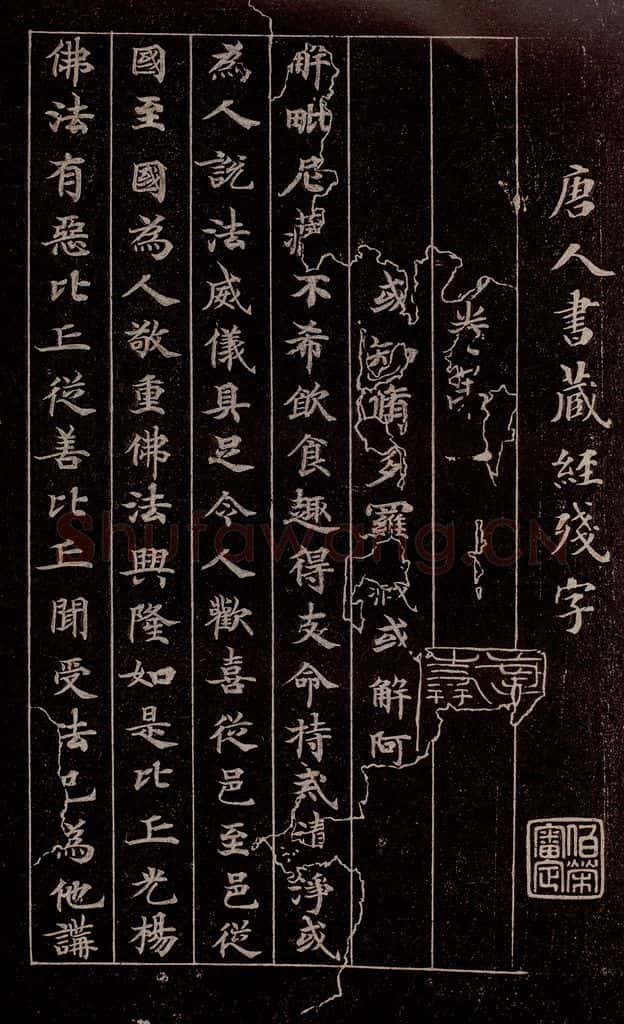 唐人書藏經殘字
伯榮審定
卷第
或知脩多羅藏或解阿
解毗尼藏不希飲食趣得支命持戒清淨或
為人說法威儀具足令人歡喜從邑至邑從
國至國為人敬重佛法興隆如是比丘光楊
佛法有惡比丘從善比丘聞受法已為他講
Shufawang.CN